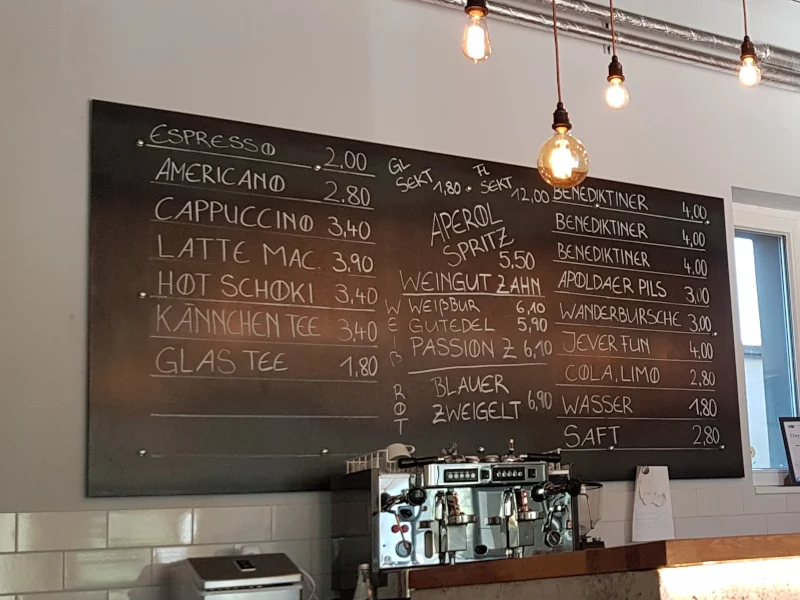 ESPRESSO 2.00
AMERICANO 2.80
CAPPUCCINO 3,40
LATTE MAC. 3,90
HOT SCHOKI 3,40
KÄNNCHEN TEE 3,40
GLAS TEE 1,80
GL SEKT 1,80 · FL SEKT 12,00
APEROL
SPRITZ
5,50
WEINGUT ZAHN
WEIß
WEIßBUR 6,10
GUTEDEL 5,90
PASSION Z 6,10
ROT
BLAUER
ZWEIGELT 6,90
BENEDIKTINER 4,00
BENEDIKTINER 4,00
BENEDIKTINER 4.00
APOLDAER PILS 3,00
WANDERBURSCHE 3,00
JEVER FUN 4,00
COLA, LIMO 2,80
WASSER 1,80
SAFT 2,80